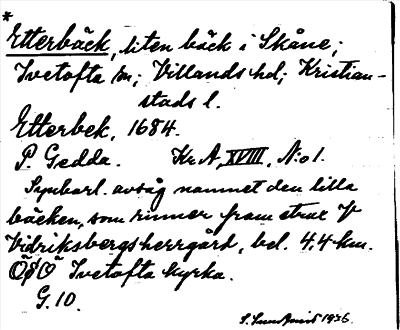 *
Etterbäck, liten bäck i Skåne;
Ivetofta sn; Villands hd; Kristian-
stads l.
Etterbek, 1684.
P. Gedda. Kr A, XVIII, No 1.
Synbarl. avsåg namnet den lilla
bäcken, som rinner fram strax V
Vidriksbergs herrgård, bel. 4,4 km.
ÖSÖ Ivetofta kyrka.
G. 10.
1936.